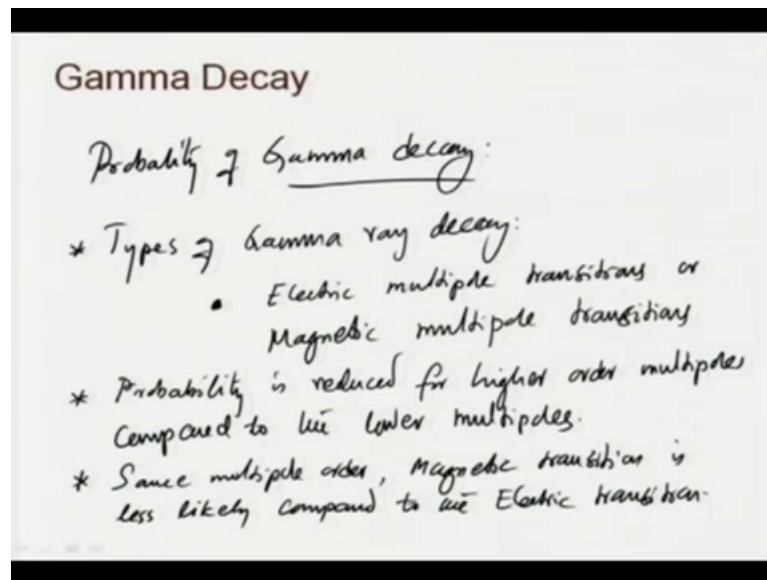 Gamma Decay
Probality of Gamma decay:
* Types of Gamma ray decay:
• Electric multipole transitions or
Magnetic multipole transitions
* Probability is reduced for higher order multipoles
compared to the lower multipoles.
* Same multipole order, Magnetic transition is
less likely compared to the Electric transition.